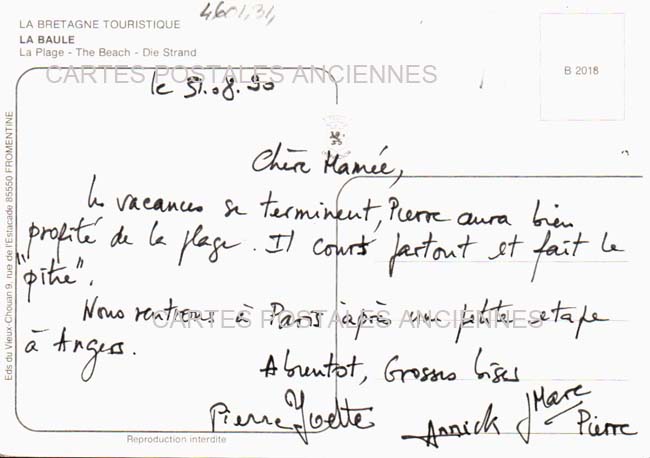 4601,31,
LA BRETAGNE TOURISTIQUE
LA BAULE
La Plage - The Beach - Die Strand
B 2018
CARTES POSTALES ANCIENNES
le 31.08.90
Chère Mamée,
Les vacances se terminent, Pierre aura bien
profité de la plage. Il court partout et fait le
"pitre".
Nous rentrons à Paris après une petite etape
CARTES POSTALES ANCIENNES
à Angers.
A bientot, Grosses bises
Pierre Yvette Annick Marc
Pierre
Reproduction interdite
Eds du Vieux-Chouan 9, rue de l'Estacade 85550 FROMENTINE